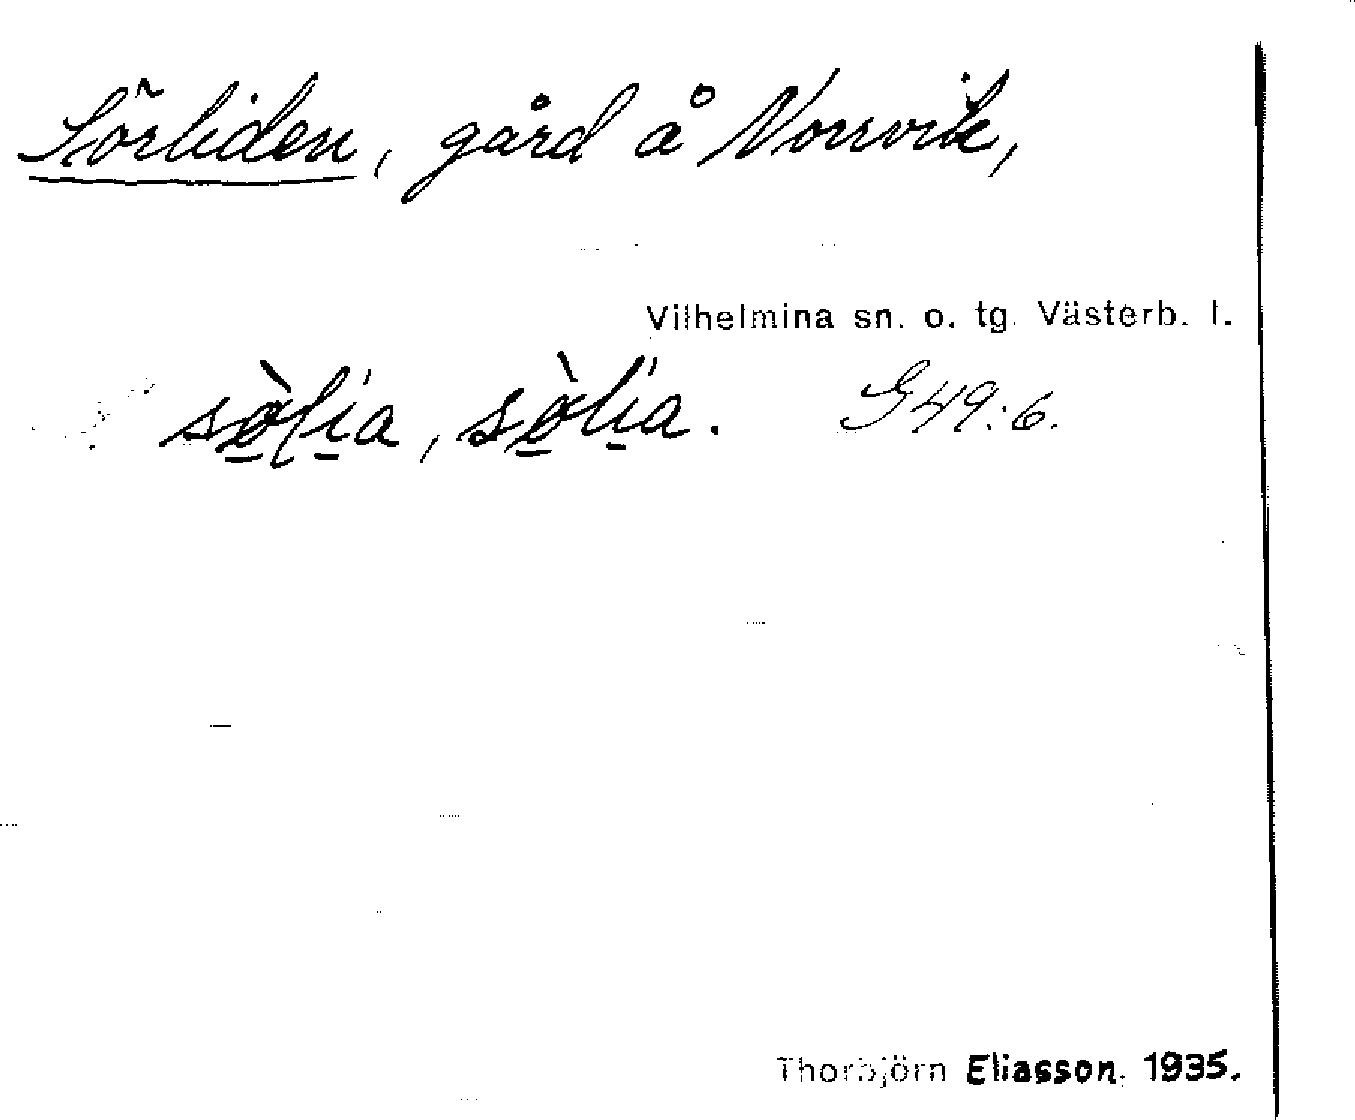 Sörliden, gård å Norrvik,
Vilhelmina sn. o. tg. Västerb. l.
sø̀lia, sø̀lia. G 49:6.
Thorbjörn Eliasson. 1935.